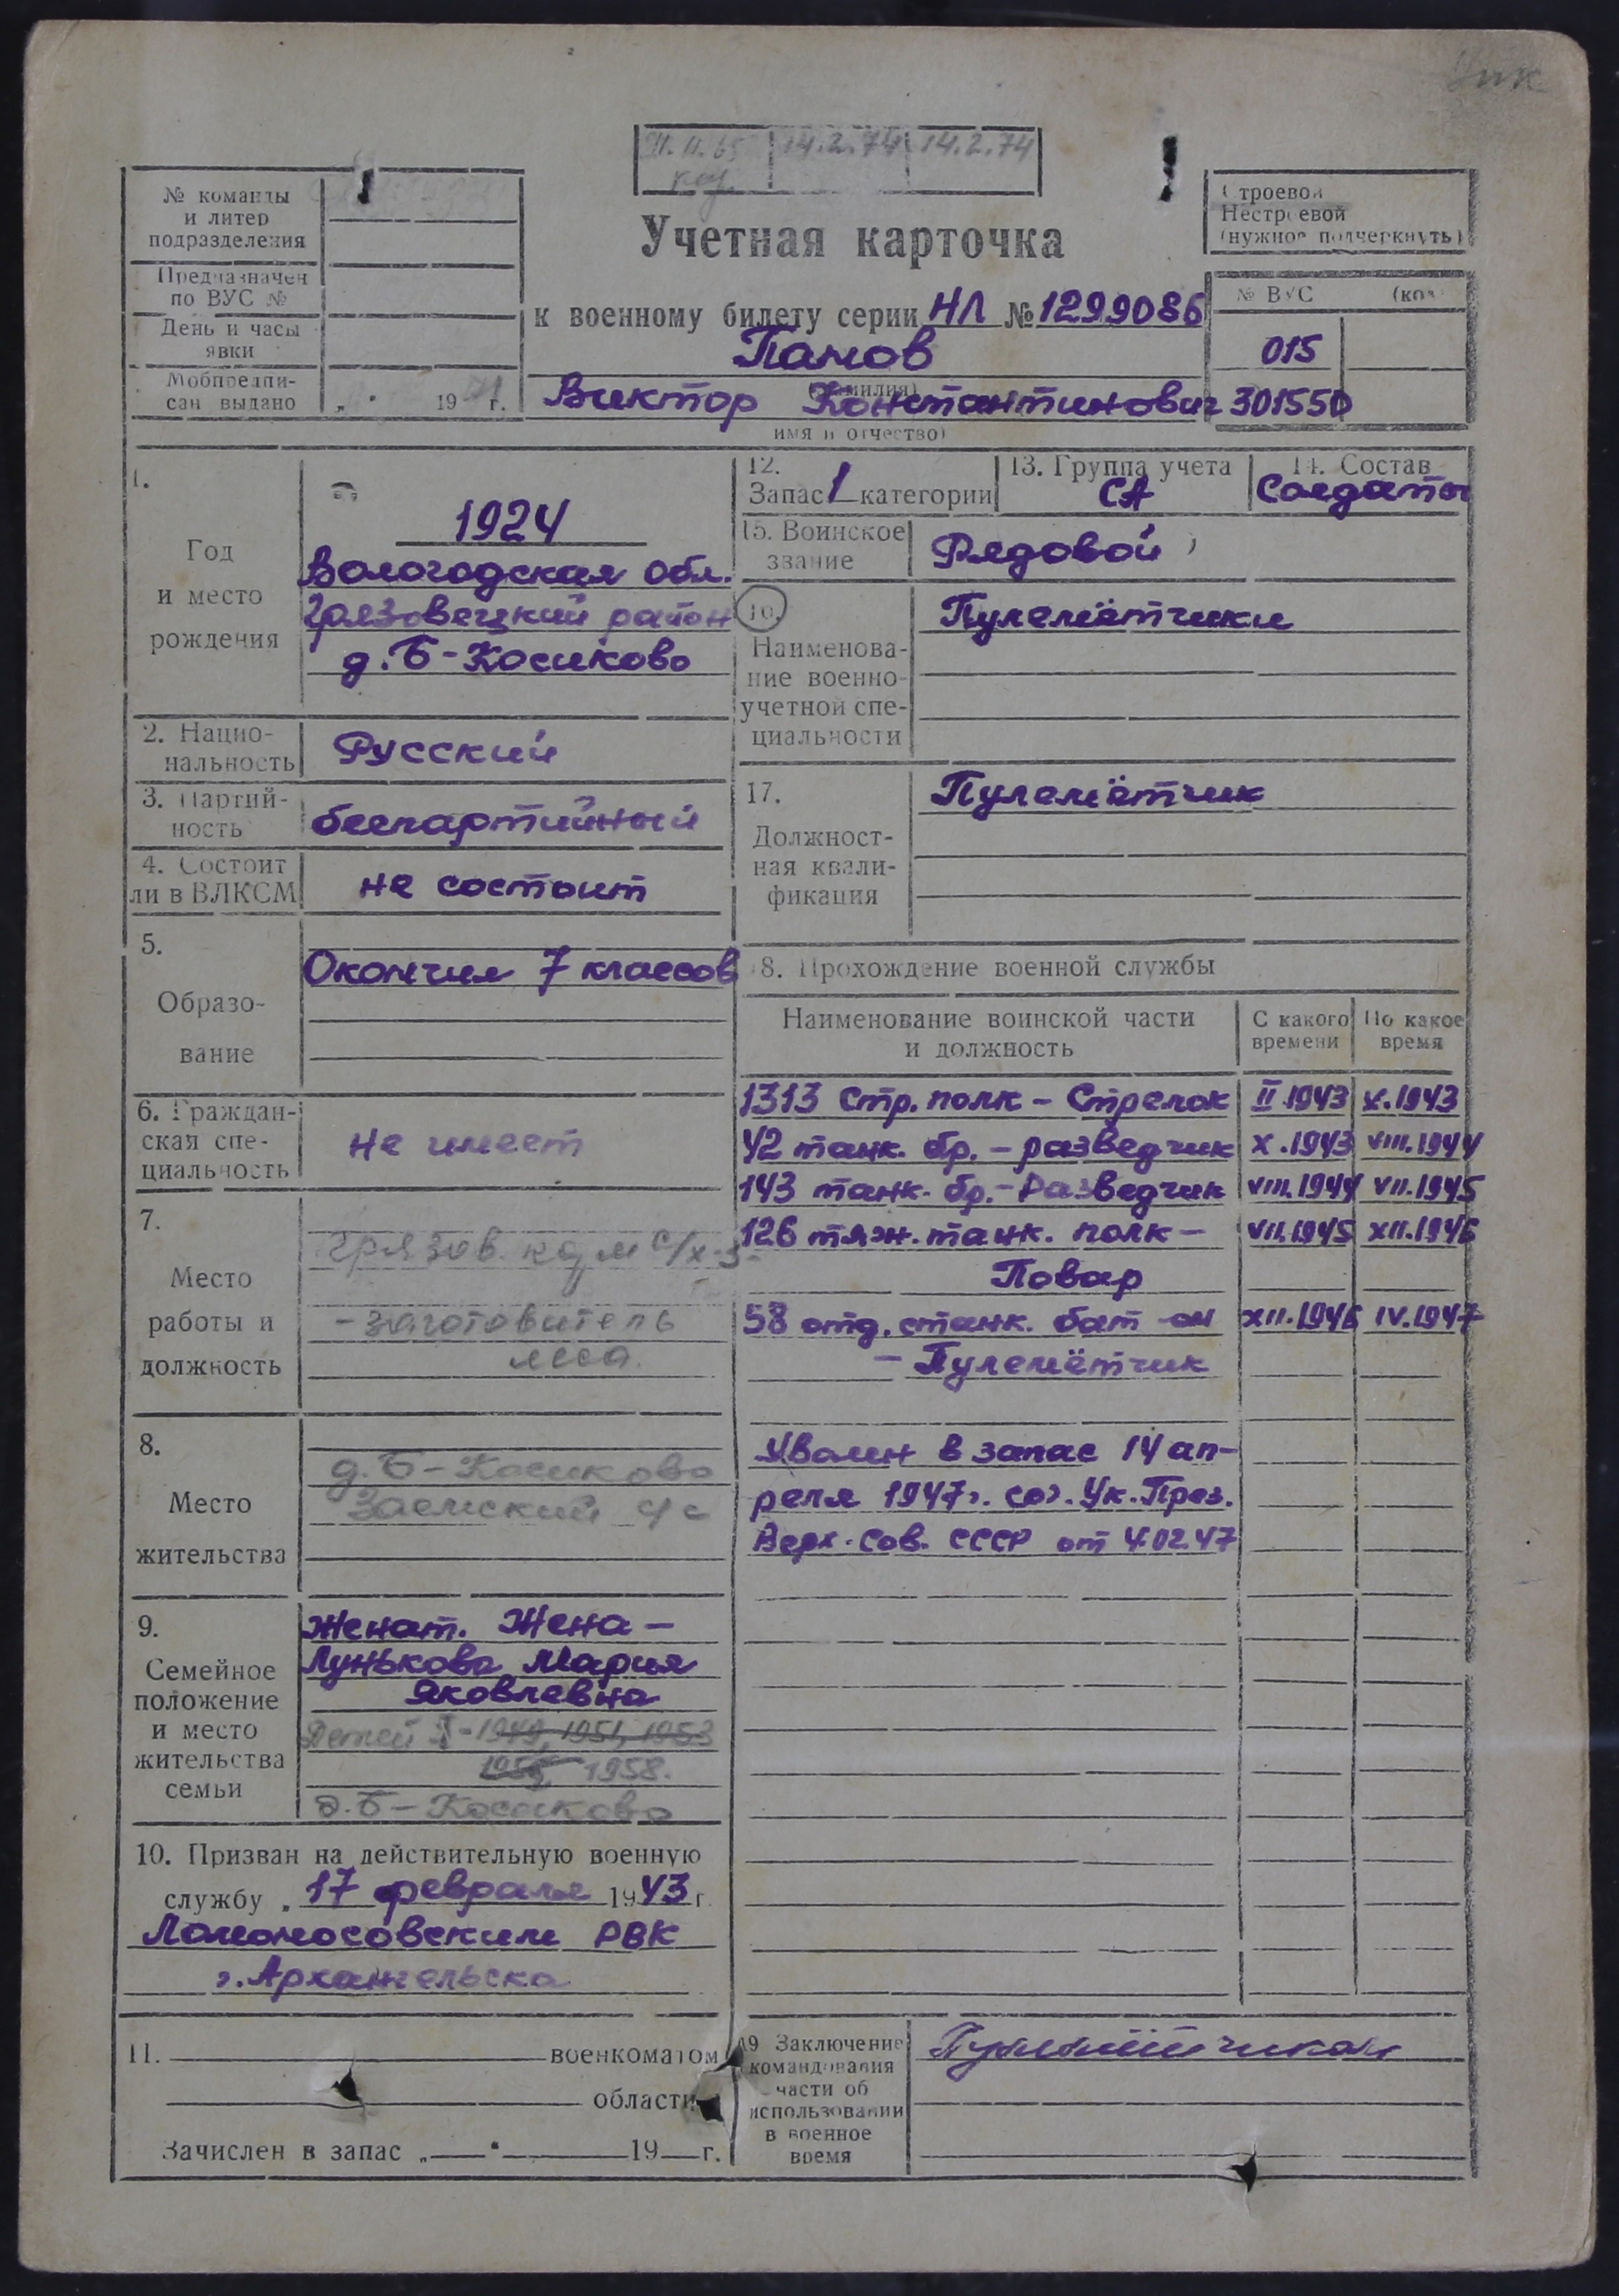 14.2.74 14.2.74
№ команды
и литер
подразделения
Предназначен
по ВУС №
День и часы
явки
Мобпредпи-
сан выдано „ " 19 г.
Учетная карточка
к военному билету серии НЛ № 1299086
Панов
(фамилия)
Виктор Константинович
имя и отчество)
Строевой
Нестроевой
(нужное подчеркнуть)
№ ВУС (код
015
301550
1.
Год
и место
рождения
1924
Вологодская обл.
Грязовецкий район
д. Б-Косиково
2. Нацио-
нальность
Русский
3. Партий-
ность
беспартийный
4. Состоит
ли в ВЛКСМ
не состоит
5.
Образо-
вание
Окончил 7 классов
6. Граждан-
ская спе-
циальность
Не имеет
7.
Место
работы и
должность
Грязов.
- заготовитель
леса.
8.
Место
жительства
д. Б-Косиково
Заемский с/с
9.
Семейное
положение
и место
жительства
семьи
Женат. Жена -
Лунькова Мария
Яковлевна
Детей - 1949, 1951, 1953
1955, 1958.
д. Б-Косиково
10. Призван на действительную военную
службу „ 17 февраля 1943 г.
Ломоносовским РВК
г. Архангельска
11. военкоматом
области
Зачислен в запас „ " 19 г.
12.
Запас 1 категории
13. Группа учета
СА
14. Состав
Солдаты
15. Воинское
звание
Рядовой
16.
Наименова-
ние военно-
учетной спе-
циальности
Пулемётчики
17.
Должност-
ная квали-
фикация
Пулемётчик
18. Прохождение военной службы
Наименование воинской части
и должность
С какого
времени
По какое
время
1313 Стр. полк - Стрелок II.1943 X.1943
42 танк. бр. - разведчик X.1943 VIII.1944
143 танк. бр. - Разведчик VIII.1944 VII.1945
126 тяж. танк. полк - VII.1945 XII.1946
Повар
58 отд. станк. бат-он XII.1946 IV.1947
- Пулемётчик
Уволен в запас 14 ап-
реля 1947г. сог. Ук. През.
Верх. Сов. СССР от 4.02.47
19 Заключение
командования
части об
использовании
в военное
время
Пулемётчиком